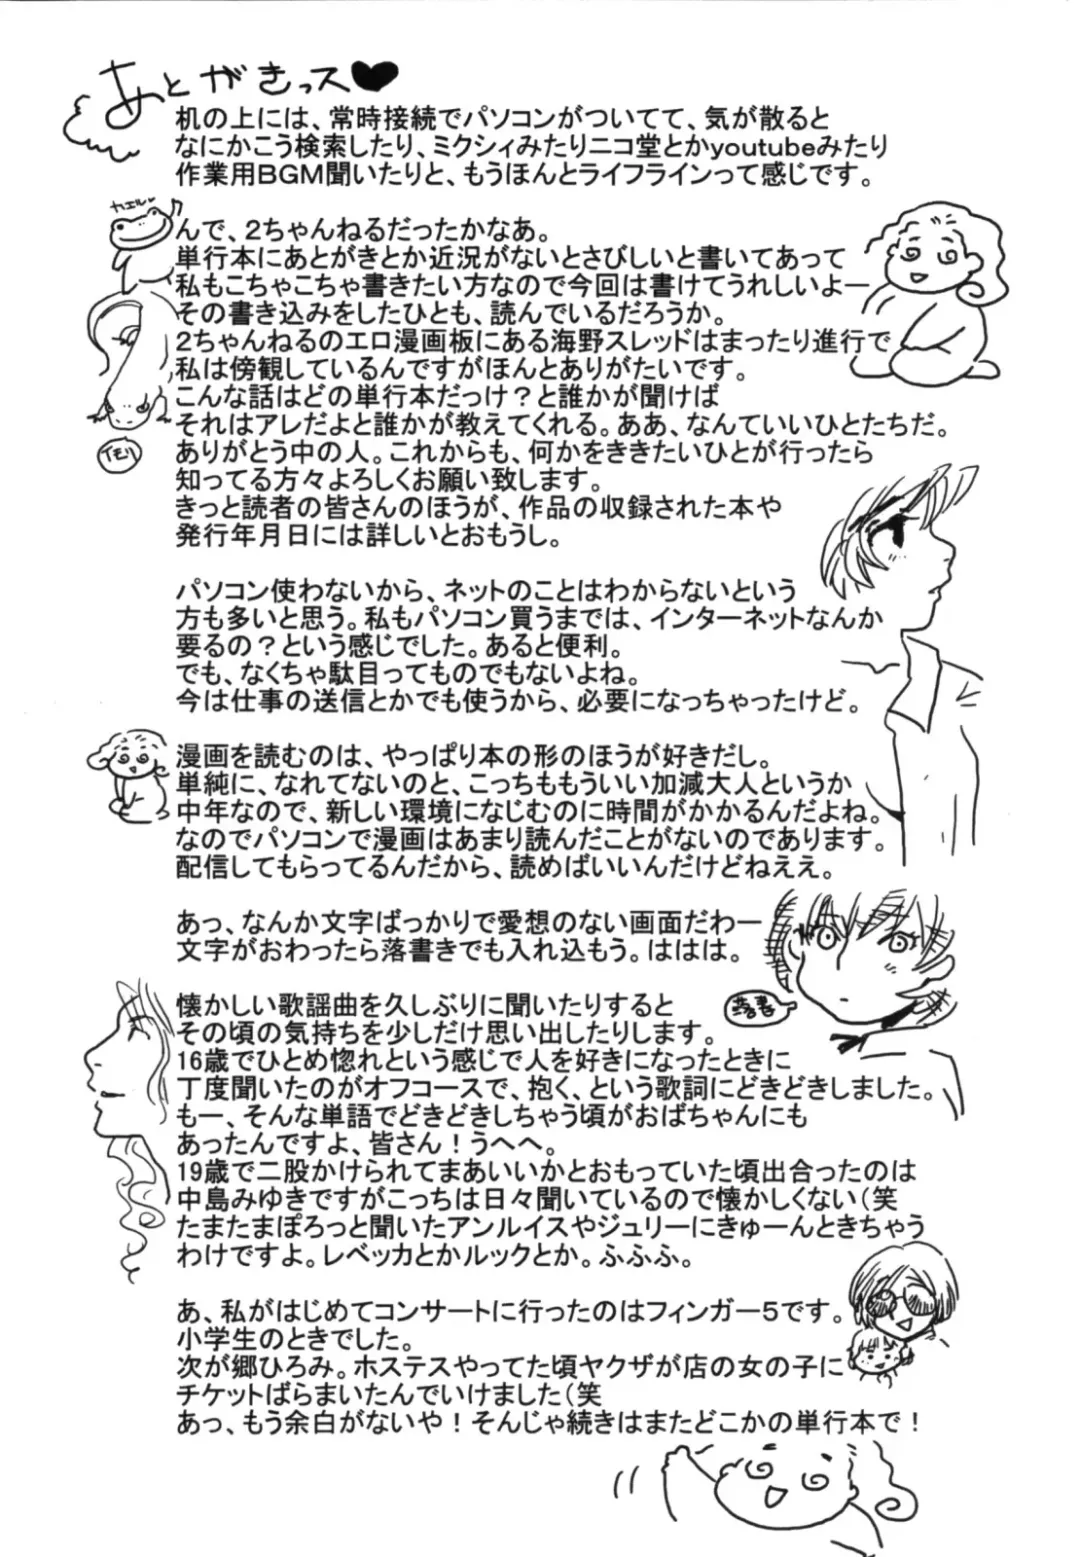 あとがきっス♥
机の上には、常時接続でパソコンがついてて、気が散ると
なにかこう検索したり、ミクシィみたりニコ堂とかyoutubeみたり
作業用BGM聞いたりと、もうほんとライフラインって感じです。
カエル
んで、2ちゃんねるだったかなあ。
単行本にあとがきとか近況がないとさびしいと書いてあって
私もこちゃこちゃ書きたい方なので今回は書けてうれしいよー
その書き込みをしたひとも、読んでいるだろうか。
2ちゃんねるのエロ漫画板にある海野スレッドはまったり進行で
私は傍観しているんですがほんとありがたいです。
こんな話はどの単行本だっけ？と誰かが聞けば
それはアレだよと誰かが教えてくれる。ああ、なんていいひとたちだ。
イモリ
ありがとう中の人。これからも、何かをききたいひとが行ったら
知ってる方々よろしくお願い致します。
きっと読者の皆さんのほうが、作品の収録された本や
発行年月日には詳しいとおもうし。
パソコン使わないから、ネットのことはわからないという
方も多いと思う。私もパソコン買うまでは、インターネットなんか
要るの？という感じでした。あると便利。
でも、なくちゃ駄目ってものでもないよね。
今は仕事の送信とかでも使うから、必要になっちゃったけど。
漫画を読むのは、やっぱり本の形のほうが好きだし。
単純に、なれてないのと、こっちももういい加減大人というか
中年なので、新しい環境になじむのに時間がかかるんだよね。
なのでパソコンで漫画はあまり読んだことがないのであります。
配信してもらってるんだから、読めばいいんだけどねええ。
あっ、なんか文字ばっかりで愛想のない画面だわー
文字がおわったら落書きでも入れ込もう。ははは。
落書
懐かしい歌謡曲を久しぶりに聞いたりすると
その頃の気持ちを少しだけ思い出したりします。
16歳でひとめ惚れという感じで人を好きになったときに
丁度聞いたのがオフコースで、抱く、という歌詞にどきどきしました。
もー、そんな単語でどきどきしちゃう頃がおばちゃんにも
あったんですよ、皆さん！うへへ。
19歳で二股かけられてまあいいかとおもっていた頃出合ったのは
中島みゆきですがこっちは日々聞いているので懐かしくない（笑
たまたまぽろっと聞いたアンルイスやジュリーにきゅーんときちゃう
わけですよ。レベッカとかルックとか。ふふふ。
あ、私がはじめてコンサートに行ったのはフィンガー5です。
小学生のときでした。
次が郷ひろみ。ホステスやってた頃ヤクザが店の女の子に
チケットばらまいたんでいけました（笑
あっ、もう余白がないや！そんじゃ続きはまたどこかの単行本で！